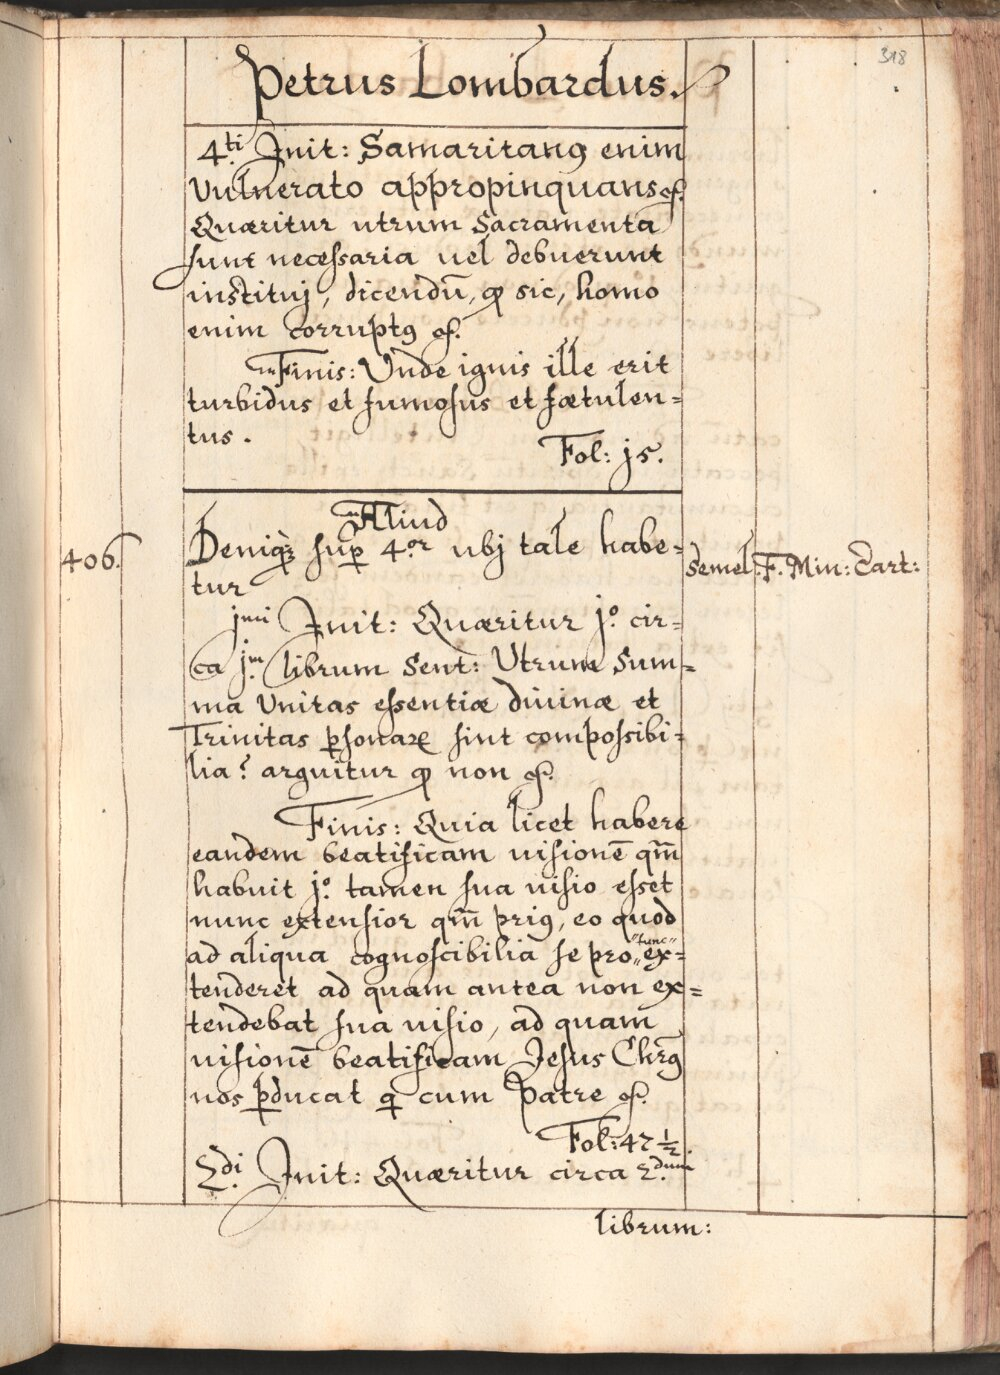 318
Petrus Lombardus.
4.ti Init: Samaritanꝯ enim
Vulnerato appropinquans ꝛc.
Quæritur utrum Sacramenta
sunt necessaria vel debuerunt
instituj, dicendū, ꝙ sic, homo
enim corruptꝯ ꝛc.
Finis: Unde ignis ille erit
turbidus et fumosus et fœtulen=
tus.
Fol: j5.
Aliud
406. Deniqꝫ suꝑ 4.or ubj tale habe= semel: F. Min: Cart:
tur
jmi Init: Quæritur jo. cir=
ca j.m librum Sent: Utrum Sum=
ma Unitas essentiæ divinæ et
Trinitas ꝑsonaꝝ sint compossibi=
lia? arguitur ꝙ non ꝛc.
Finis: Quia licet habere
eandem beatificam visionē qm̄
habuit jo. tamen sua visio esset
nunc extensior qm̄ priꝯ, eo quod
ad aliqua cognoscibilia se pro "tunc" ex=
tenderet ad quam antea non ex=
tendebat sua visio, ad quam
visionē beatificam Jesus Chrꝯ
nos ꝑducat q̄ cum Patre ꝛc.
Fol: 47 ½.
2.di Init: Quæritur circa 2.dum
librum: